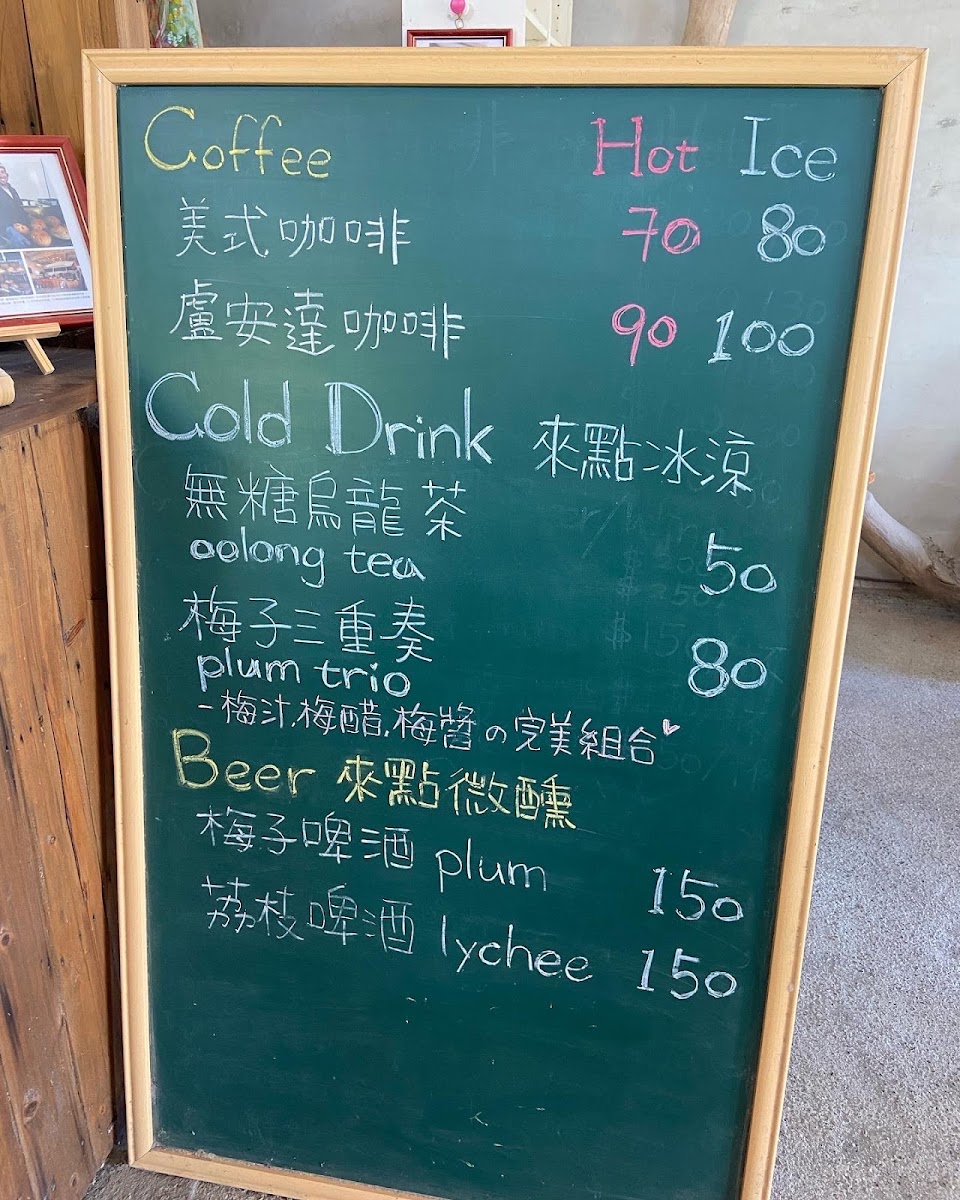 Coffee Hot Ice
美式咖啡 70 80
盧安達咖啡 90 100
Cold Drink 來點冰涼
無糖烏龍茶
oolong tea 50
梅子三重奏
plum trio 80
-梅汁.梅醋.梅醬の完美組合
Beer 來點微醺
梅子啤酒 plum 150
荔枝啤酒 lychee 150